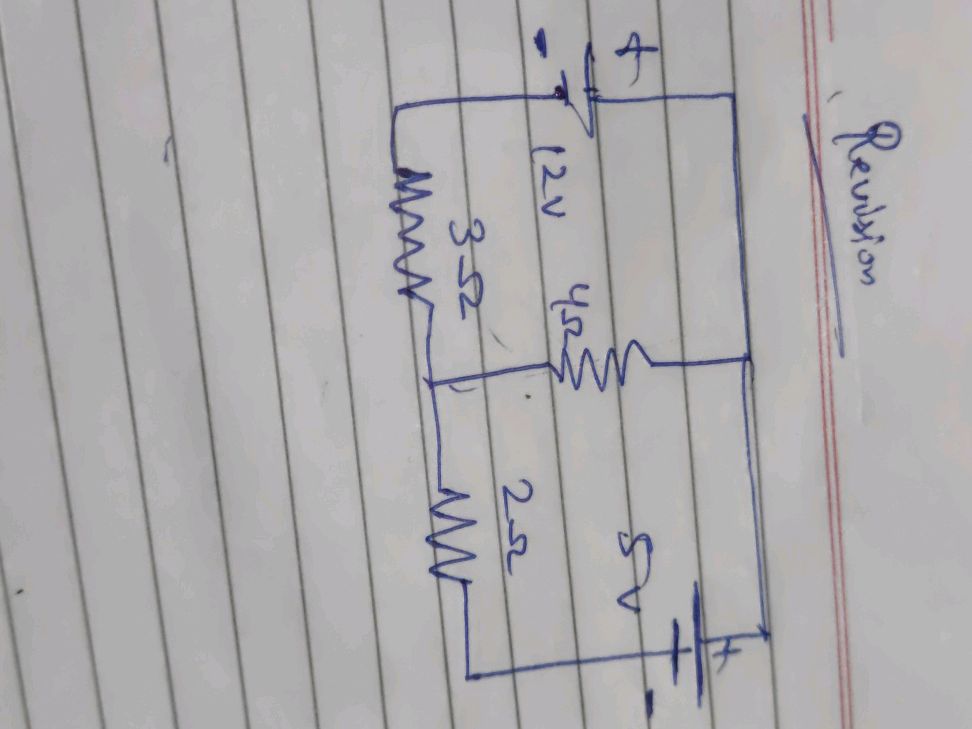 Revision
+
-
12v
4Ω
3Ω
5v
+
-
2Ω